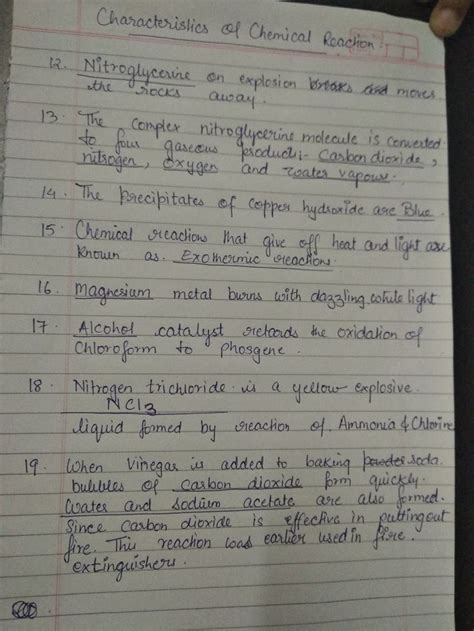 Characteristics of Chemical Reaction :
12. Nitroglycerine on explosion breaks and moves
the rocks away.
13. The complex nitroglycerine molecule is converted
to four gaseous products:- Carbon dioxide,
nitrogen, oxygen and water vapour.
14. The precipitates of copper hydroxide are Blue.
15. Chemical reactions that give off heat and light are
known as Exothermic reactions.
16. Magnesium metal burns with dazzling white light
17. Alcohol catalyst retards the oxidation of
Chloroform to phosgene.
18. Nitrogen trichloride is a yellow explosive
NCl3
liquid formed by reaction of Ammonia & Chlorine
19. When vinegar is added to baking powder soda
bubbles of carbon dioxide form quickly.
Water and sodium acetate are also formed.
Since carbon dioxide is effective in putting out
fire. This reaction was earlier used in fire
extinguishers.